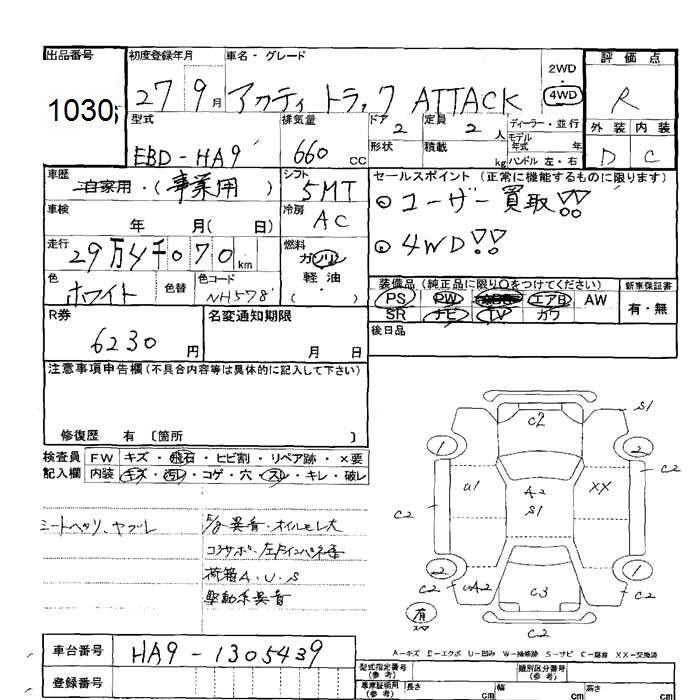 出品番号 初度登録年月 車名・グレード 評価点
1030 27 9月 アクティ トラック ATTACK 2WD・4WD R
型式 排気量 ドア 2 定員 2人 ディーラー・並行 外装 内装
EBD-HA9 660cc 形状 積載 kg モデル年式 年 ハンドル 左・右 D C
車歴 自家用・(事業用) シフト 5MT セールスポイント(正常に機能するものに限ります)
車検 年 月(日) 冷房 AC ⊙ユーザー買取!!
走行 29万4千070km 燃料 ガソリン 軽油・( ) ⊙4WD!!
色 ホワイト 色替 色コード NH578
装備品(純正品に限り○をつけてください) 新車保証書
PS PW エアB AW 有・無
SR ナビ TV カワ
R券 6230円 名変通知期限 月 日 後日品
注意事項申告欄(不具合内容等は具体的に記入して下さい)
修復歴 有 〔箇所 〕
検査員 FW キズ・飛石・ヒビ割・リペア跡・×要
記入欄 内装 キズ・汚レ・コゲ・穴・スレ・キレ・破レ
シートヘタリ、ヤブレ
E/g異音・オイルモレ大
荷箱A.U.S
駆動系異音
C2 S1
1 2 C2
U1 A2 S1 XX
C2 C2
2 C3 1
C2 C2
有 スペア
C2
A-キズ E-エクボ U-凹み W-補修跡 S-サビ C-腐食 XX-交換済
車台番号 HA9-1305439
登録番号
型式指定番号(参考) 類別区分番号(参考)
車庫証明用(参考) 長さ cm 幅 cm 高さ cm